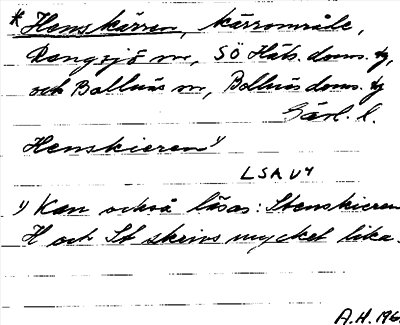 *Henskärren, kärrområde,
Rengsjö sn, SÖ Häls. doms. tg,
och Bollnäs sn, Bollnäs doms. tg
Gävl. l.
Henskieren¹⁾
LSA U4
1) Kan också läsas: Stenskieren
H och St skrivs mycket lika.
A.H. 196